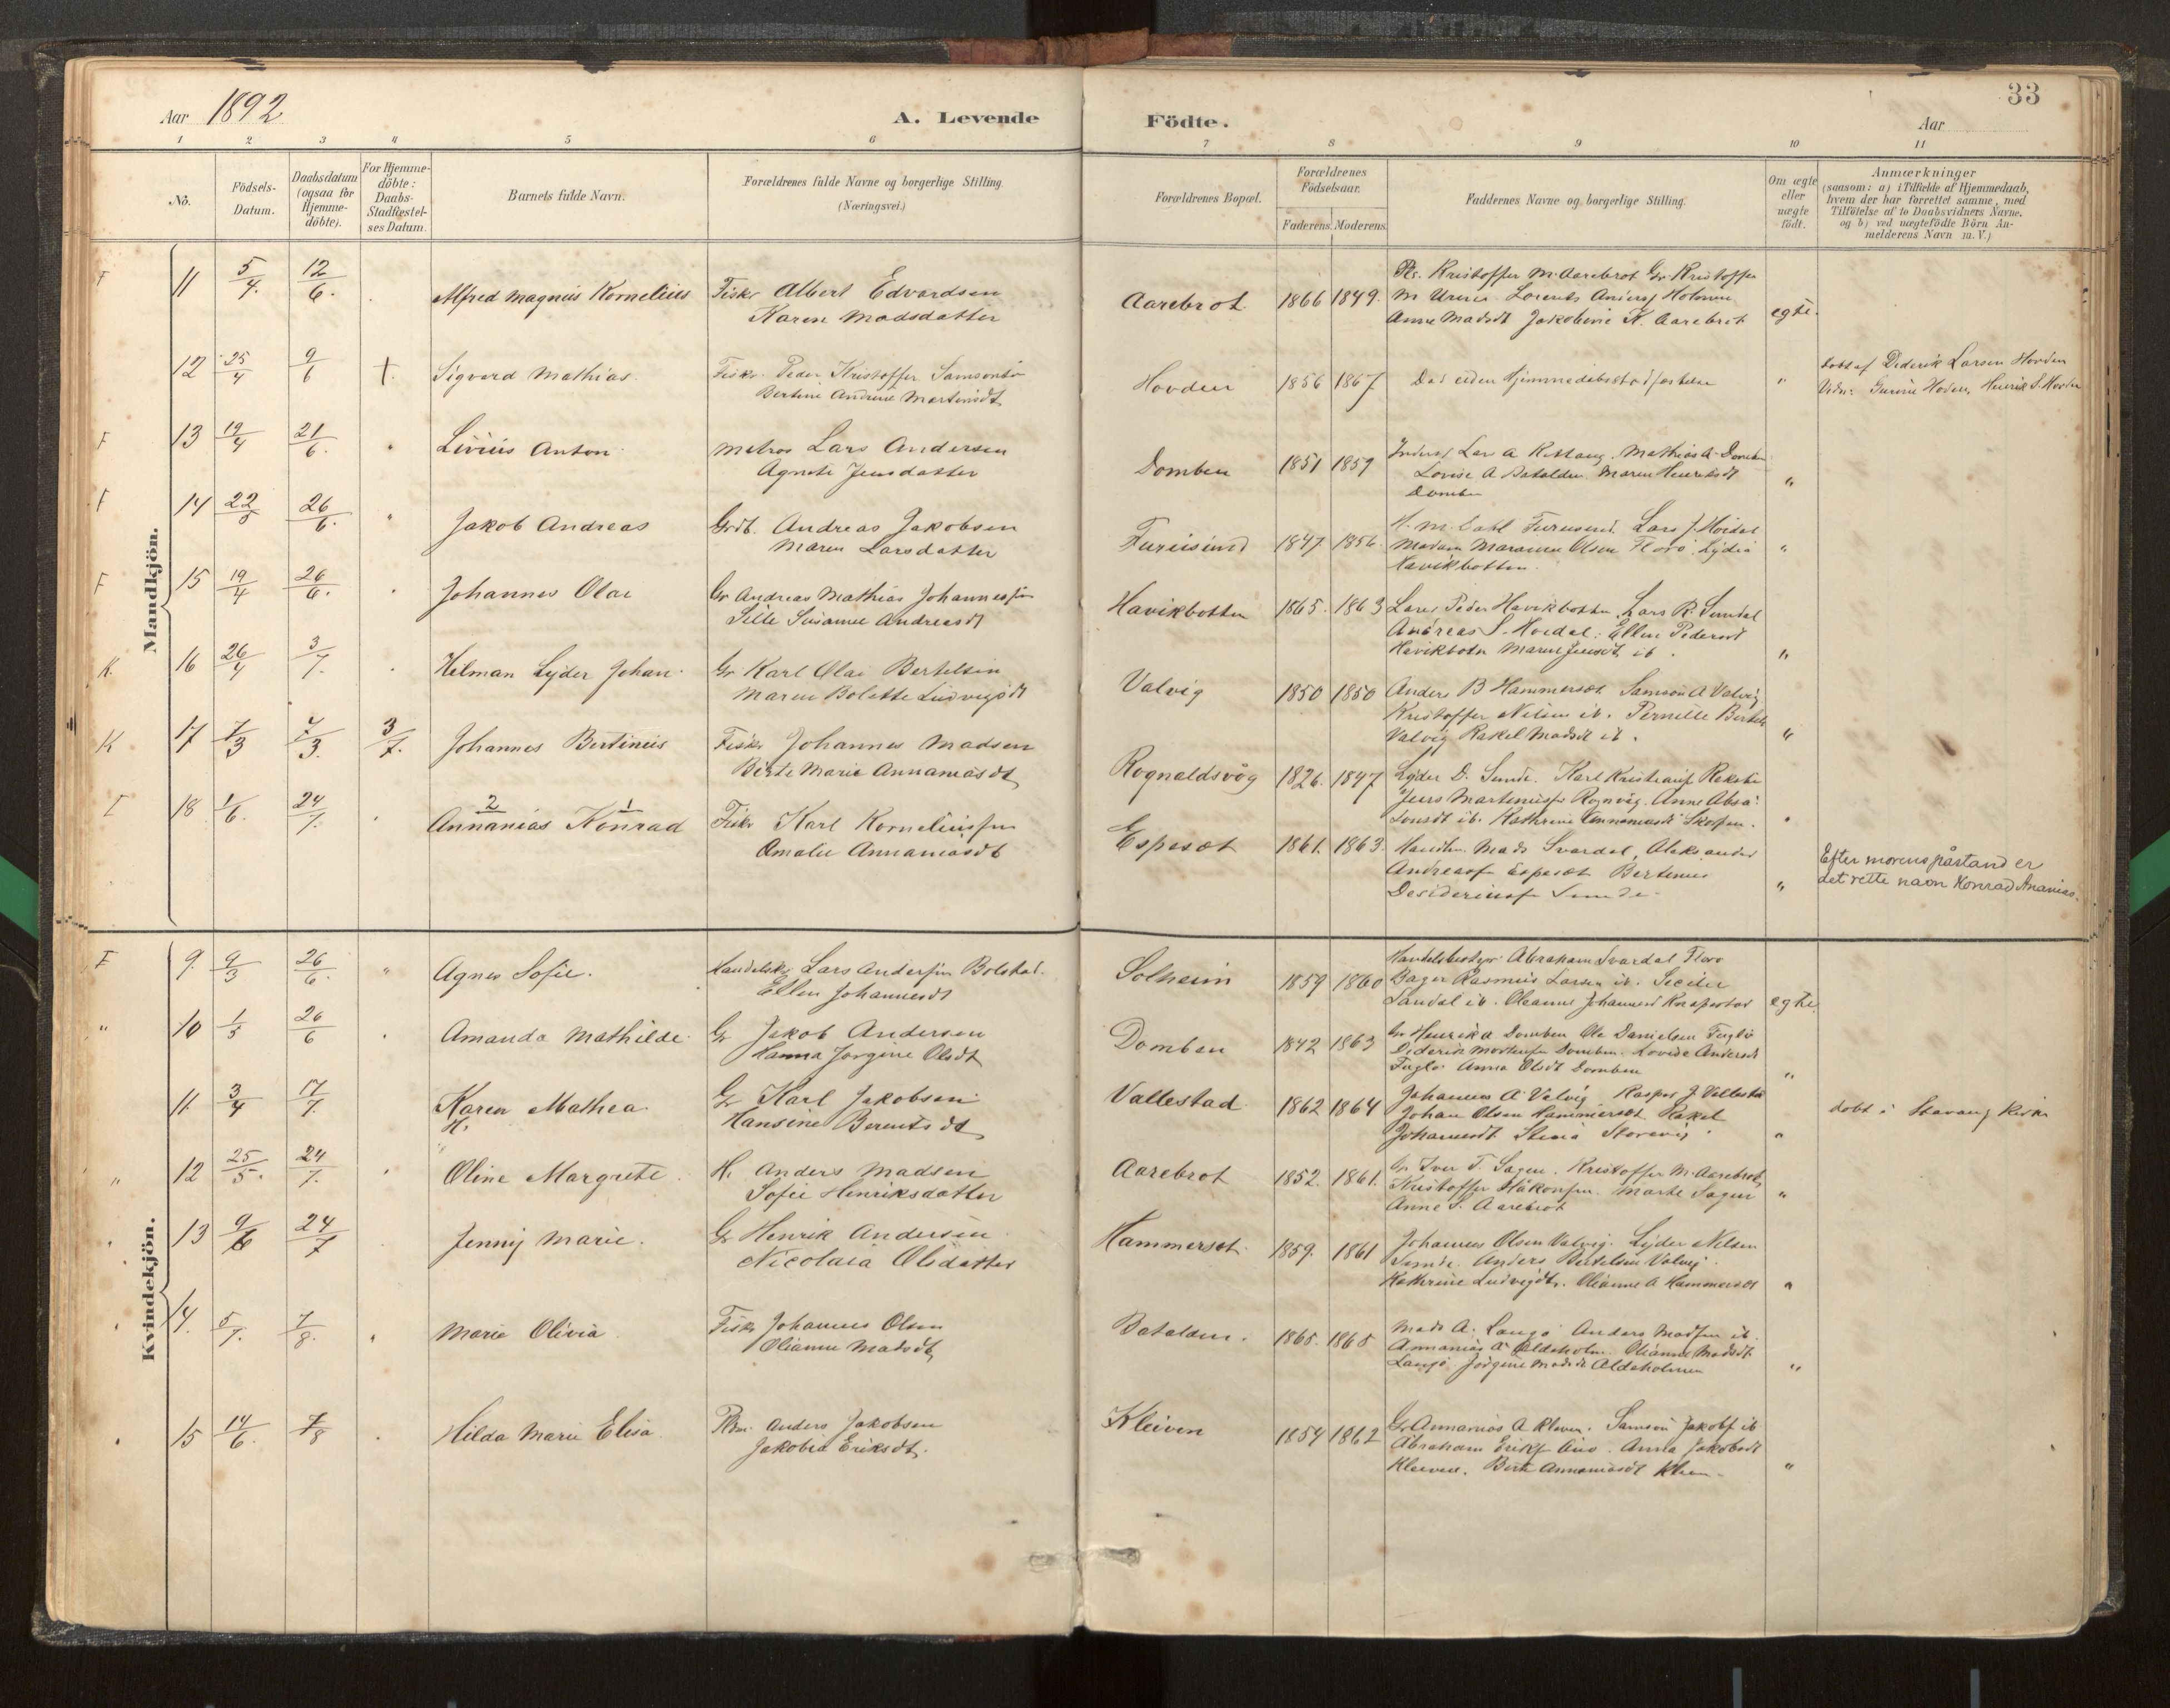 33
Aar 1892
A. Levende Födte.
Aar
1 2 3 4 5 6 7 8 9 10 11
No.
Födsels-Datum.
Daabsdatum (ogsaa for Hjemme-döbte).
For Hjemme-döbte: Daabs-Stadfæstel-ses Datum.
Barnets fulde Navn.
Forældrenes fulde Navne og borgerlige Stilling. (Næringsvei.)
Forældrenes Bopæl.
Forældrenes Födselsaar.
Faderens. Moderens.
Faddernes Navne og borgerlige Stilling.
Om ægte eller uægte födt.
Anmærkninger
(saasom: a) i Tilfælde af Hjemmedaab,
hvem der har forrettet samme, med
Tilföielse af to Daabsvidners Navne.
og b) ved uægtefödte Börn An-
melderens Navn m. V.)
Mandkjön.
F 11 5/4. 12/6. Alfred Magnus Kornelius Fisker Albert Edvardsen
Karen Madsdatter
Aarebrot 1866 1849. Kristoffer M. Aarebrot Gr. Kristoffer
Anne Madsdt Jakobine K. Aarebrot egte.
12 25/4 9/6 +. Sigvard Mathias. Fisker Peder Kristoffer Samsons
Bertine Andrine Martinsdt
Hovden 1856 1867 Død uden Hjemmedaabsstadfæstelse "
Døbt af Diderik Larsen Hovden
Vidn: Hoden, Henrik S. Hovden
F 13 19/4 21/6. " Livius Anton Matros Lars Andersen
Agnete Jensdatter
Domben 1851 1859 Lars A Mathias A. Domben
Lovise A Batalden Maren Henriksdt
Domben "
F 14 22/5 26/6. " Jakob Andreas Grdb. Andreas Jakobsen
Maren Larsdatter
Furusund 1847 1856. H. M. Dahl Furusund. Lars J. Hoidal
Madam Olsen Florø Lydia
Havikbotten. "
F 15 19/4 26/6. Johannes Olai Gr Andreas Mathias Johannessen
Sille Susanne Andreasdt
Havikbotten 1865. 1863 Lars Peder Havikbotten Lars R. Sundal
Andreas S. Hoidal: Ellen Pedersdt
Havikboten Maren Jensdt ib. "
K. 16 26/4 3/7. Hilman Lyder Johan. Gr Karl Olai Bertelsen
Maren Bolette Ludvigsdt
Valvig 1850 1850 Anders B Hammersæt Samson A Valvig
Kristoffer Nilsen ib. Pernille Bertels
Valvig Rakel Madsdt ib. "
K 17 7/3 7/3. 3/7. Johannes Bertineus Fisker Johannes Madsen
Berte Marie Annaniasdt
Rognaldsvåg 1826. 1847 Lyder D. Sunde. Karl
Jens Rognvåg. Anne Absa-
lonsdt ib. Kathrine Annaniasdt "
I 18 1/6. 24/7. 2 1
Annanias Konrad Fisker Karl Korneliussen
Amalie Annaniasdt
Espesæt 1861. 1863. Handlm. Mads Svardal, Aleksander
Andreassen Espesæt Bertinus
Desideriussen Sunde. "
Efter morens påstand er
det rette navn Konrad Ananias.
Kvindekjön.
F 9. 9/3 26/6. " Agnes Sofie. Handelsk. Lars Anderssen Bolstad.
Ellen Johannesdt
Solheim 1859 1860 Handelsbestyr Abraham Svardal Florø
Bager Rasmus Larsen ib. Secilie
Sandal ib. Oleanne Johannesd egte.
" 10 1/5 26/6 Amanda Mathilde. Gr Jakob Andersen
Hanna Jørgine Olsdt
Domben 1842 1863 Gr Henrik A Domben Ole Danielsen Fuglø
Diderik Mortensen Domben. Lovise Andersdt
Fuglø Anna Olsdt Domben "
11. 3/4 17/7. Karen Mathea
H.
Gr Karl Jakobsen
Hansine Berentsdt
Vallestad 1862 1864 Johannes A Valvig Kasper J Vallestad
Johan Olsen Hammersæt Rakel
Johannesdt Storevig. "
døbt i Stavang kirke
" 12 25/5. 24/7. Oline Margrete. H. Anders Madsen
Sofie Henriksdatter
Aarebrot 1852. 1861. Gr Iver T. Sagen. Kristoffer M. Aarebrot
Kristoffer Håkonsen. Marte Sagen
Anne S. Aarebrot "
" 13 9/6 24/7 Jenny Marie. Gr Henrik Andersen
Nicolaia Olsdatter
Hammersæt. 1859. 1861 Johannes Olsen Valvig. Lyder Nilsen
Sunde. Anders Bertelsen Valvig.
Kathrine Ludvigdtr. Oleanne A Hammersæt "
" 14. 5/7. 7/8. " Marie Olivia. Fisker Johannes Olsen
Olianne Madsdt
Batalden. 1865. 1865 Mads A. Langø Anders Madsen ib.
Annanias A Aldeholm. Olianne Madsdt
Langø Jørgine Madsdt Aldeholmen "
" 15 14/6. 7/8 Hilda Marie Elisa. Anders Jakobsen
Jakobia Eriksdt.
Kleiven 1854 1862 Gr Annanias A Kleven. Samson Jakobs ib
Abraham Eriks. Anna Jakobsdt
Kleiven. Berte Annaniasdt "